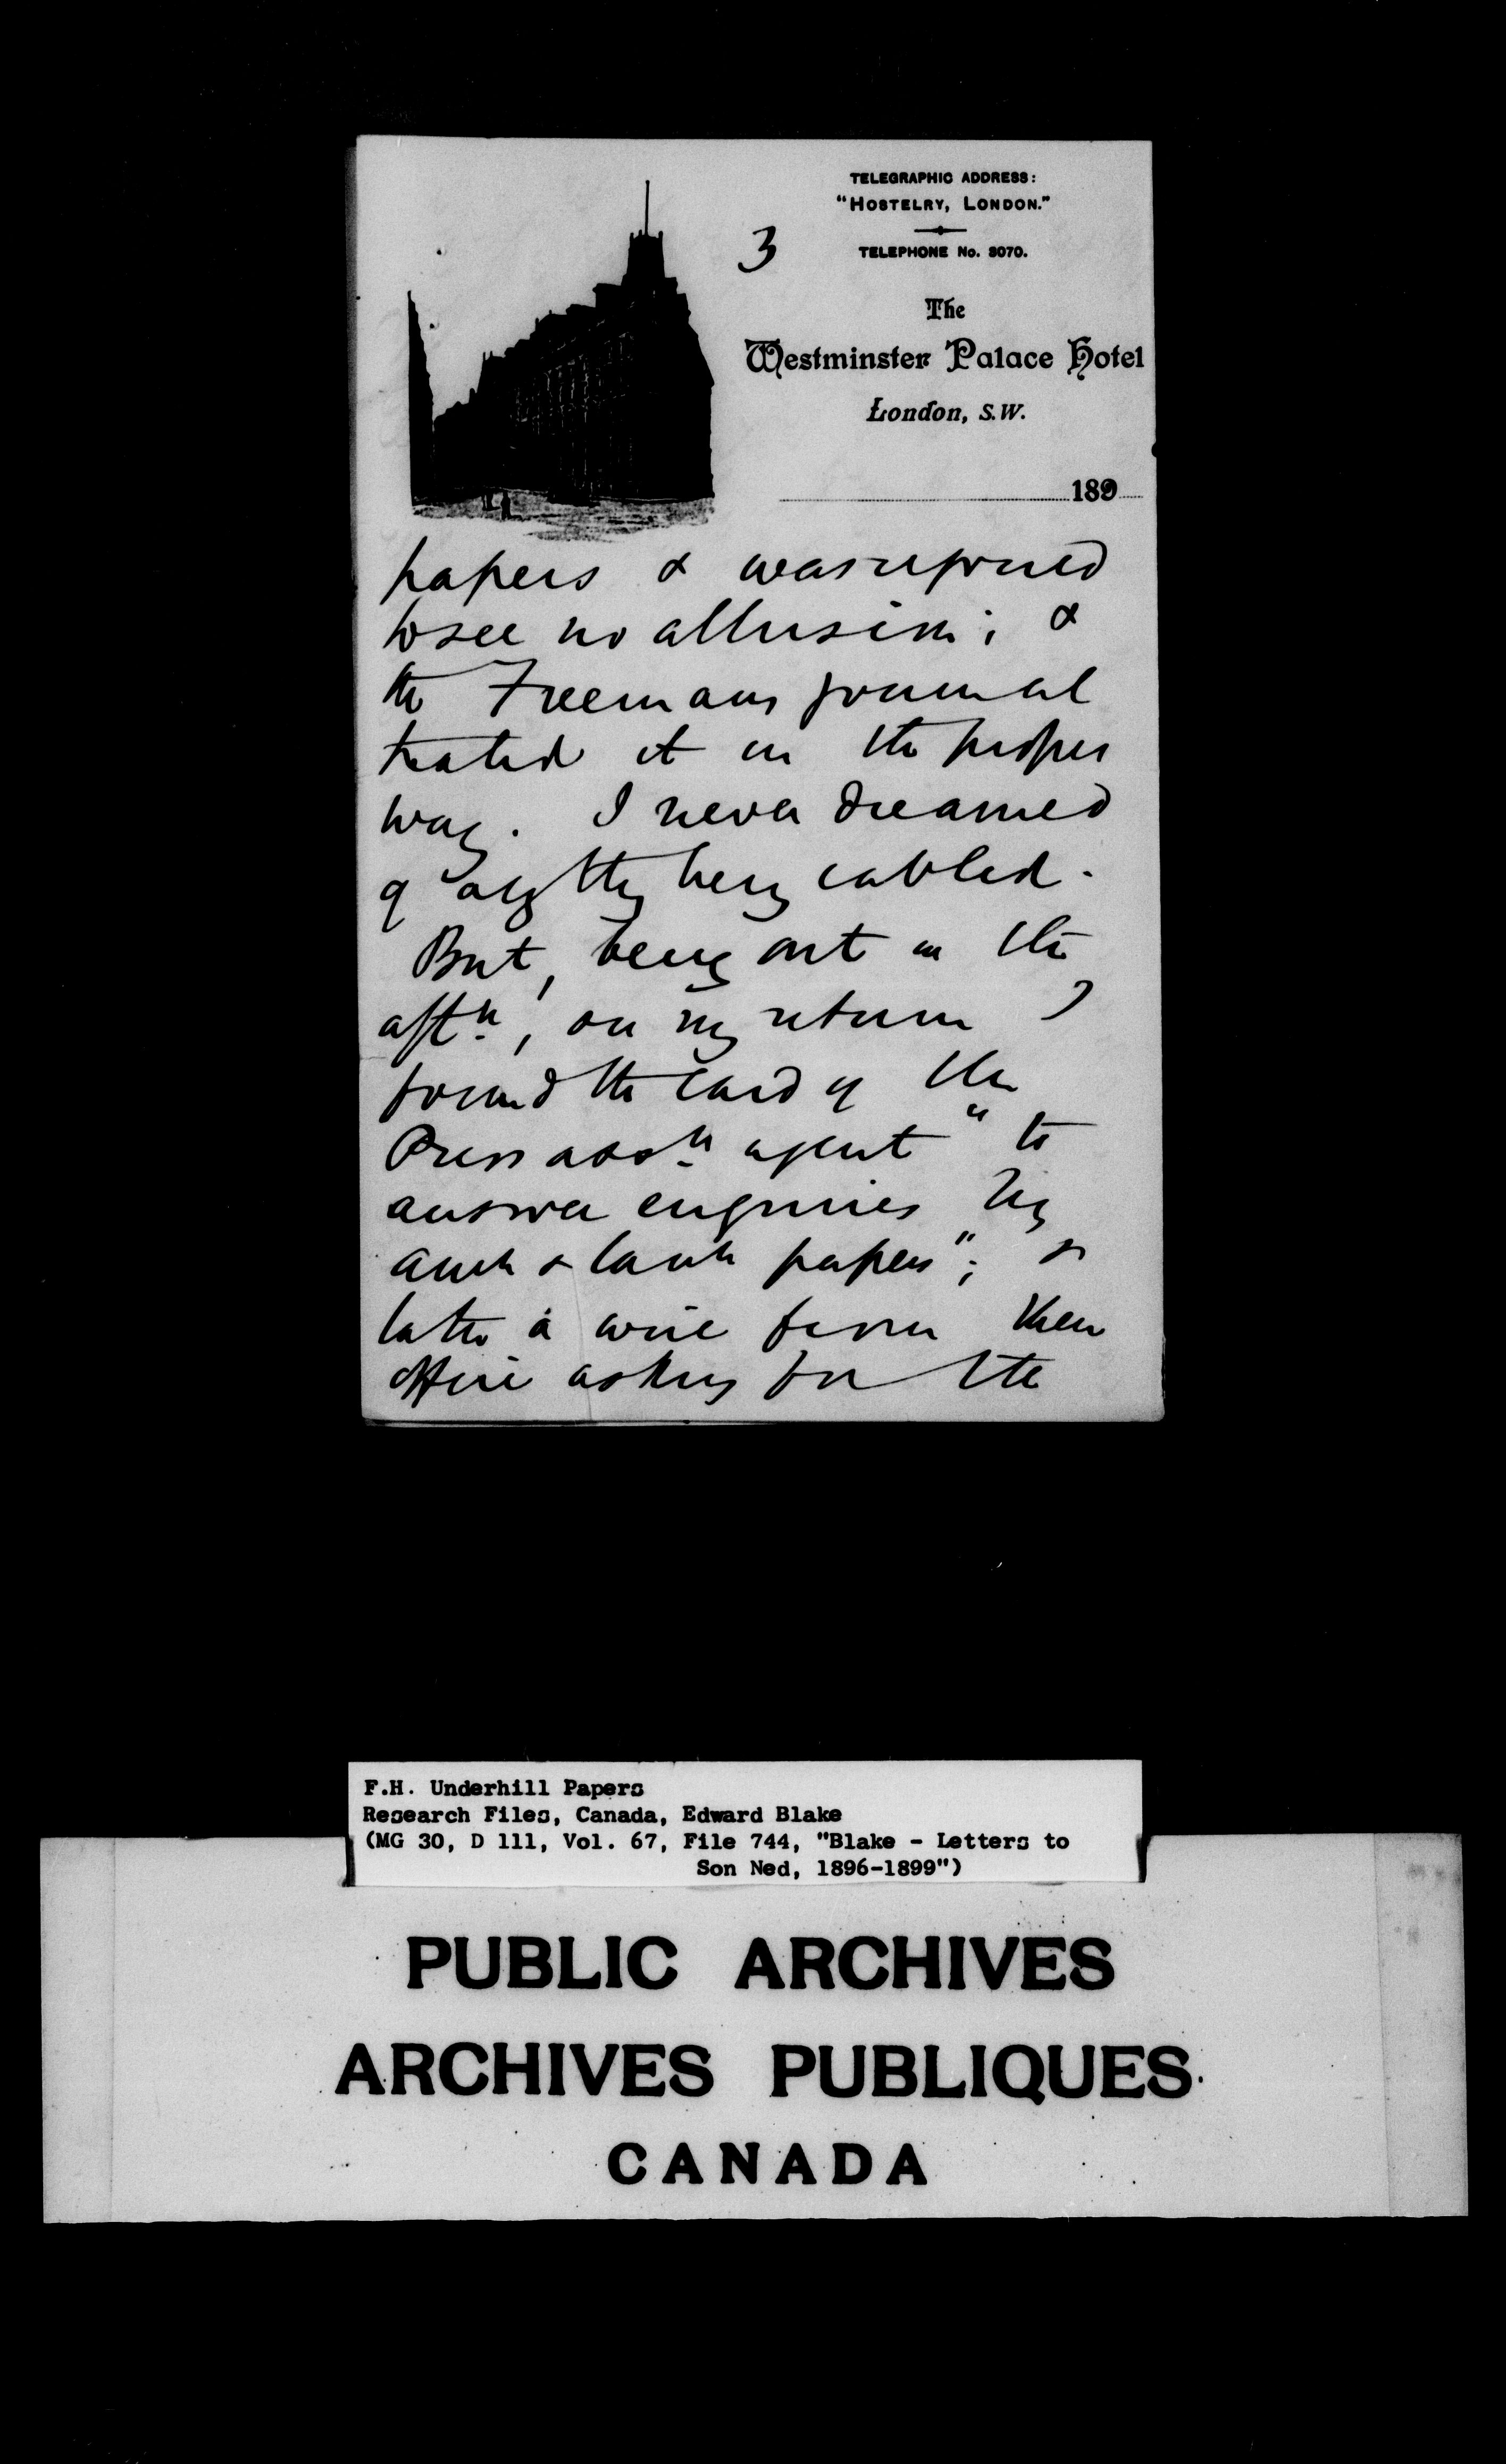 TELEGRAPHIC ADDRESS:
"HOSTELRY, LONDON."
3
TELEPHONE No. 3070.
The
Westminster Palace Hotel
London, S.W.
189
papers & was rejoiced
to see no allusion; &
the Freemans journal
treated it in the proper
way. I never dreamed
of anything being cabled.
But, being out in the
aftn, on my return I
found the card of the
Press assn agent "to
answer enquiries by
Amn & Cann papers"; &
later a wire from their
office asking for the
F.H. Underhill Papers
Research Files, Canada, Edward Blake
(MG 30, D 111, Vol. 67, File 744, "Blake - Letters to
Son Ned, 1896-1899")
PUBLIC ARCHIVES
ARCHIVES PUBLIQUES
CANADA